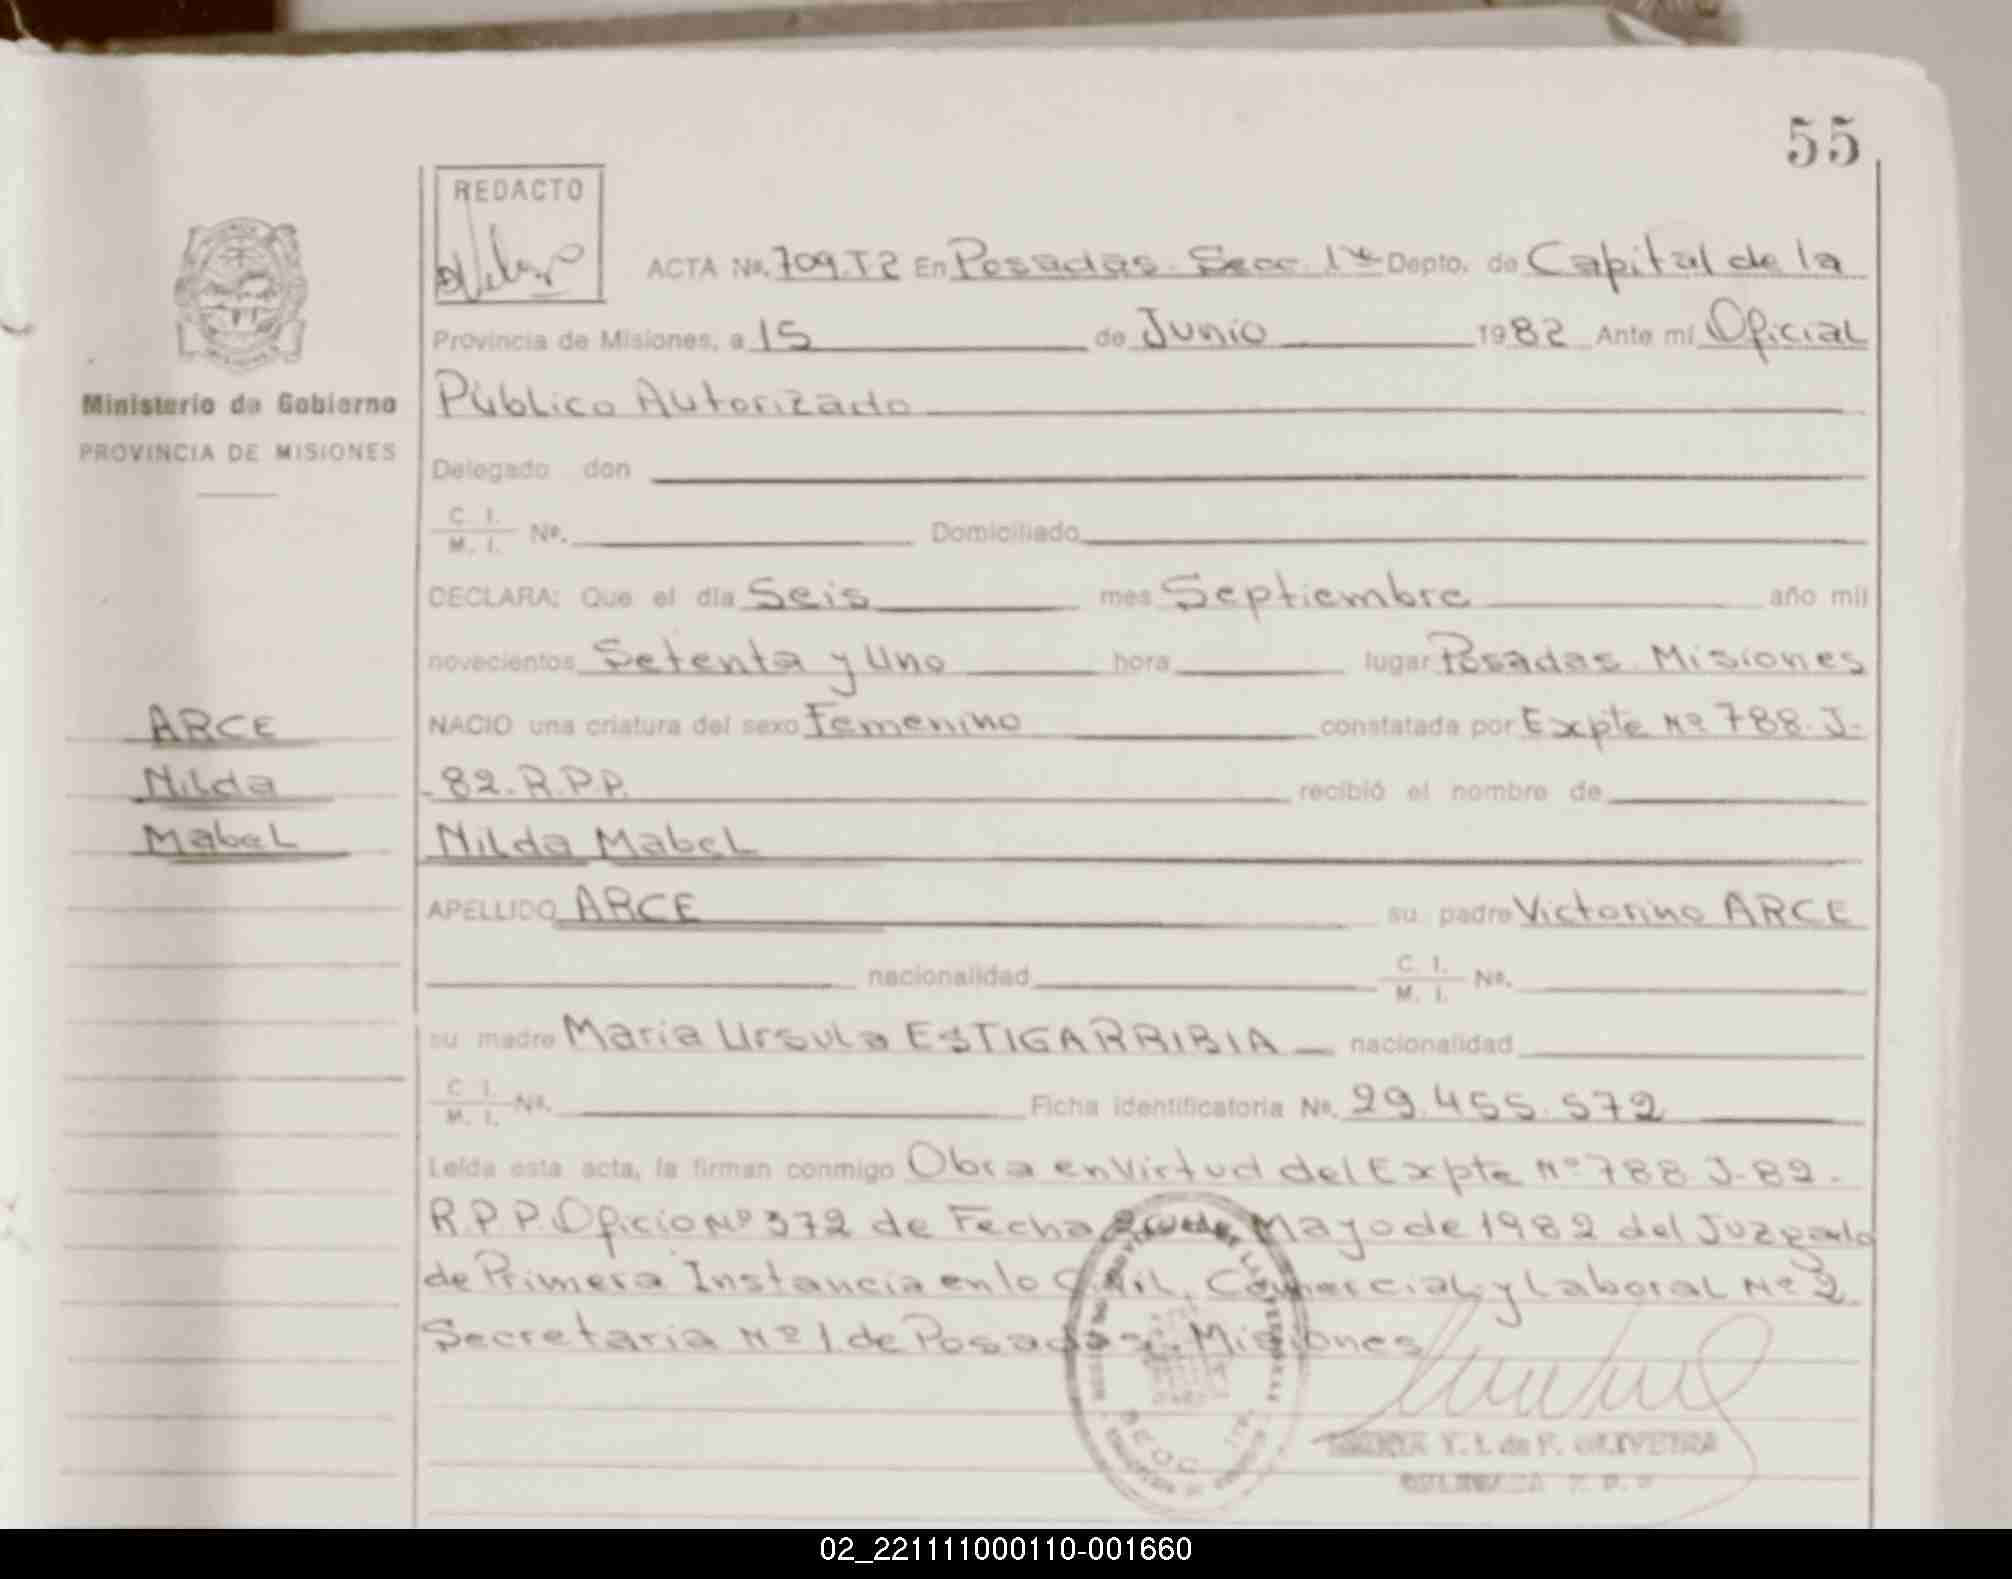 55
REDACTO
ACTA Nº. 709.T2 En Posadas. Secc. 1ª Depto. de Capital de la
Provincia de Misiones, a 15 de Junio 1982 Ante mí Oficial
Ministerio de Gobierno
Público Autorizado
PROVINCIA DE MISIONES
Delegado don
C. I.
M. I. Nº. Domiciliado
DECLARA: Que el día Seis mes Septiembre año mil
novecientos Setenta y Uno hora lugar Posadas. Misiones
ARCE
NACIO una criatura del sexo Femenino constatada por Expte Nº 788. J-
Nilda
-82-R.P.P. recibió el nombre de
Mabel
Nilda Mabel
APELLIDO ARCE su padre Victorino ARCE
nacionalidad C. I.
M. I. Nº.
su madre Maria Ursula ESTIGARRIBIA nacionalidad
C. I.
M. I. Nº. Ficha identificatoria Nº. 29.455.572
Leída esta acta, la firman conmigo Obra en Virtud del Expte Nº 788 J-82-
R.P.P. Oficio Nº 372 de Fecha Mayo de 1982 del Juzgado
de Primera Instancia en lo Civil, Comercial y Laboral Nº 2
Secretaria Nº 1. de Posadas. Misiones
Y. I. de F. OLIVEIRA
02_221111000110-001660